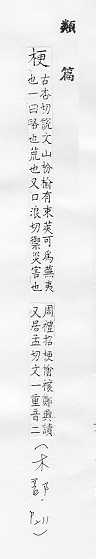 類
篇
梗
古杏切說文山枌榆有朿莢可爲蕪夷
也一曰略也荒也又口浪切禦災害也
周禮招梗襘禳鄭興讀
又居孟切文一重音二
(木部